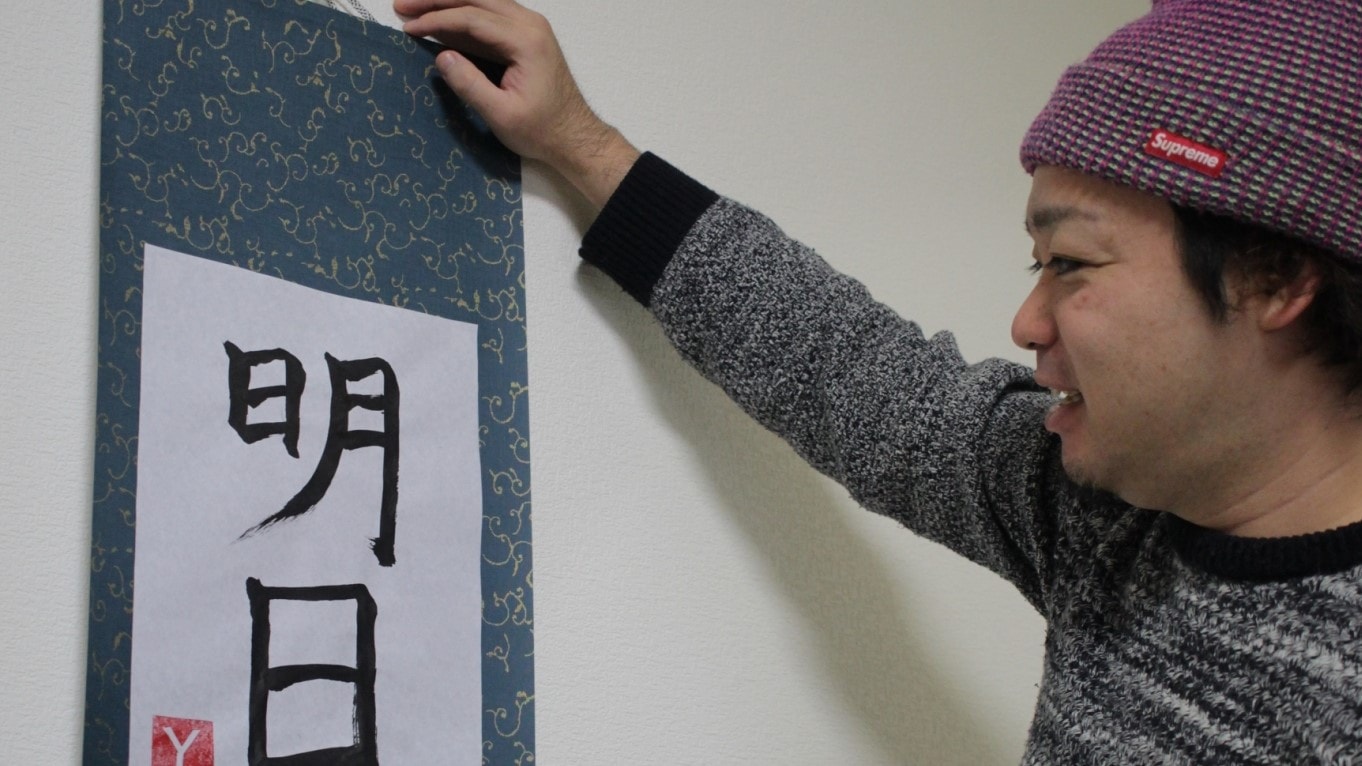 明日
Y
Supreme